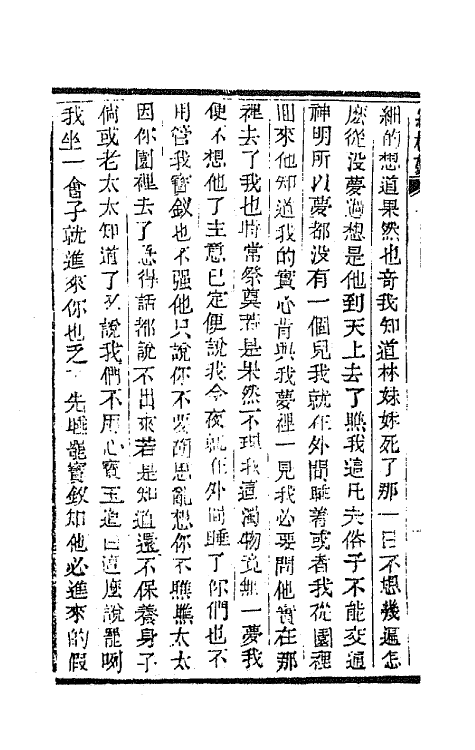 細的想道果然也奇我知道林妹妹死了那一日不想幾遍怎
麽從没夢過想是他到天上去了瞧我這凡夫俗子不能交通
神明所以夢都没有一個兒我就在外間睡着或者我從園裡
囬來他知道我的實心肯與我夢裡一見我必要問他實在那
裡去了我也時常祭奠若是果然不理我這濁物竟無一夢我
便不想他了主意已定便說我今夜就在外間睡了你們也不
用管我寳釵也不强他只說你不要胡思亂想你不瞧瞧太太
因你園裡去了急得話都說不出來若是知道還不保養身子
倘或老太太知道了又說我們不用心寳玉道白這麽說罷咧
我坐一會子就進來你也乏了先睡罷寳釵知他必進來的假